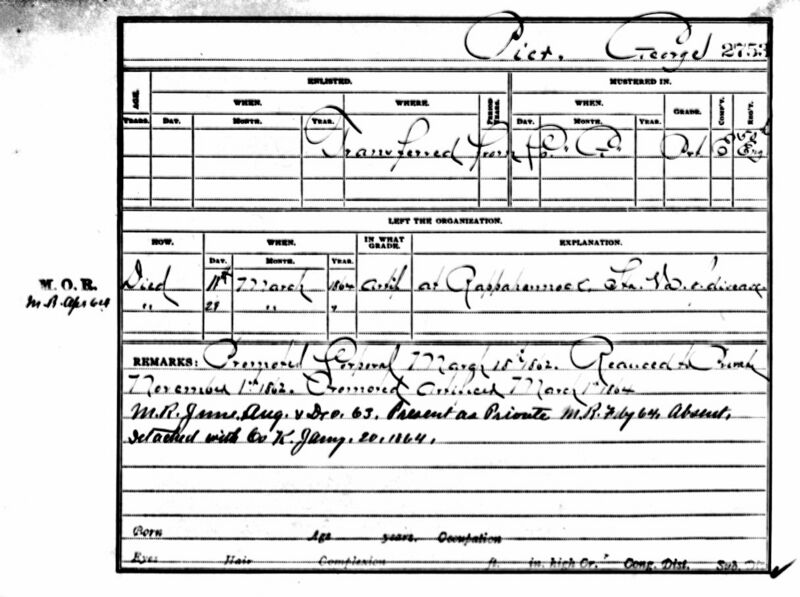 Piet. George 2753
ENLISTED. MUSTERED IN.
AGE. WHEN. WHERE. PERIOD WHEN. GRADE. COMP'Y. REG'T.
YEARS. DAY. MONTH. YEAR. YEARS. DAY. MONTH. YEAR.
Transferred from Co. C. Pvt Eng
LEFT THE ORGANIZATION.
HOW. WHEN. IN WHAT GRADE. EXPLANATION.
DAY. MONTH. YEAR.
M. O. R. Died 11th March 1864 Artif at Rappahannock, Sta. Va. of disease
M.R. Apr 64 " 29 " "
REMARKS: Promoted Corporal March 18th 1862. Reduced to
November 1st 1862. Promoted Artificer March 1st 1864
M.R. June, Aug. & Dec. 63, Present as Private M.R. Feby 64, Absent,
detached with Co K. Jany. 20, 1864.
Born Age years. Occupation
Eyes Hair Complexion ft. in. high Cr. Cong. Dist. Sub. Dis